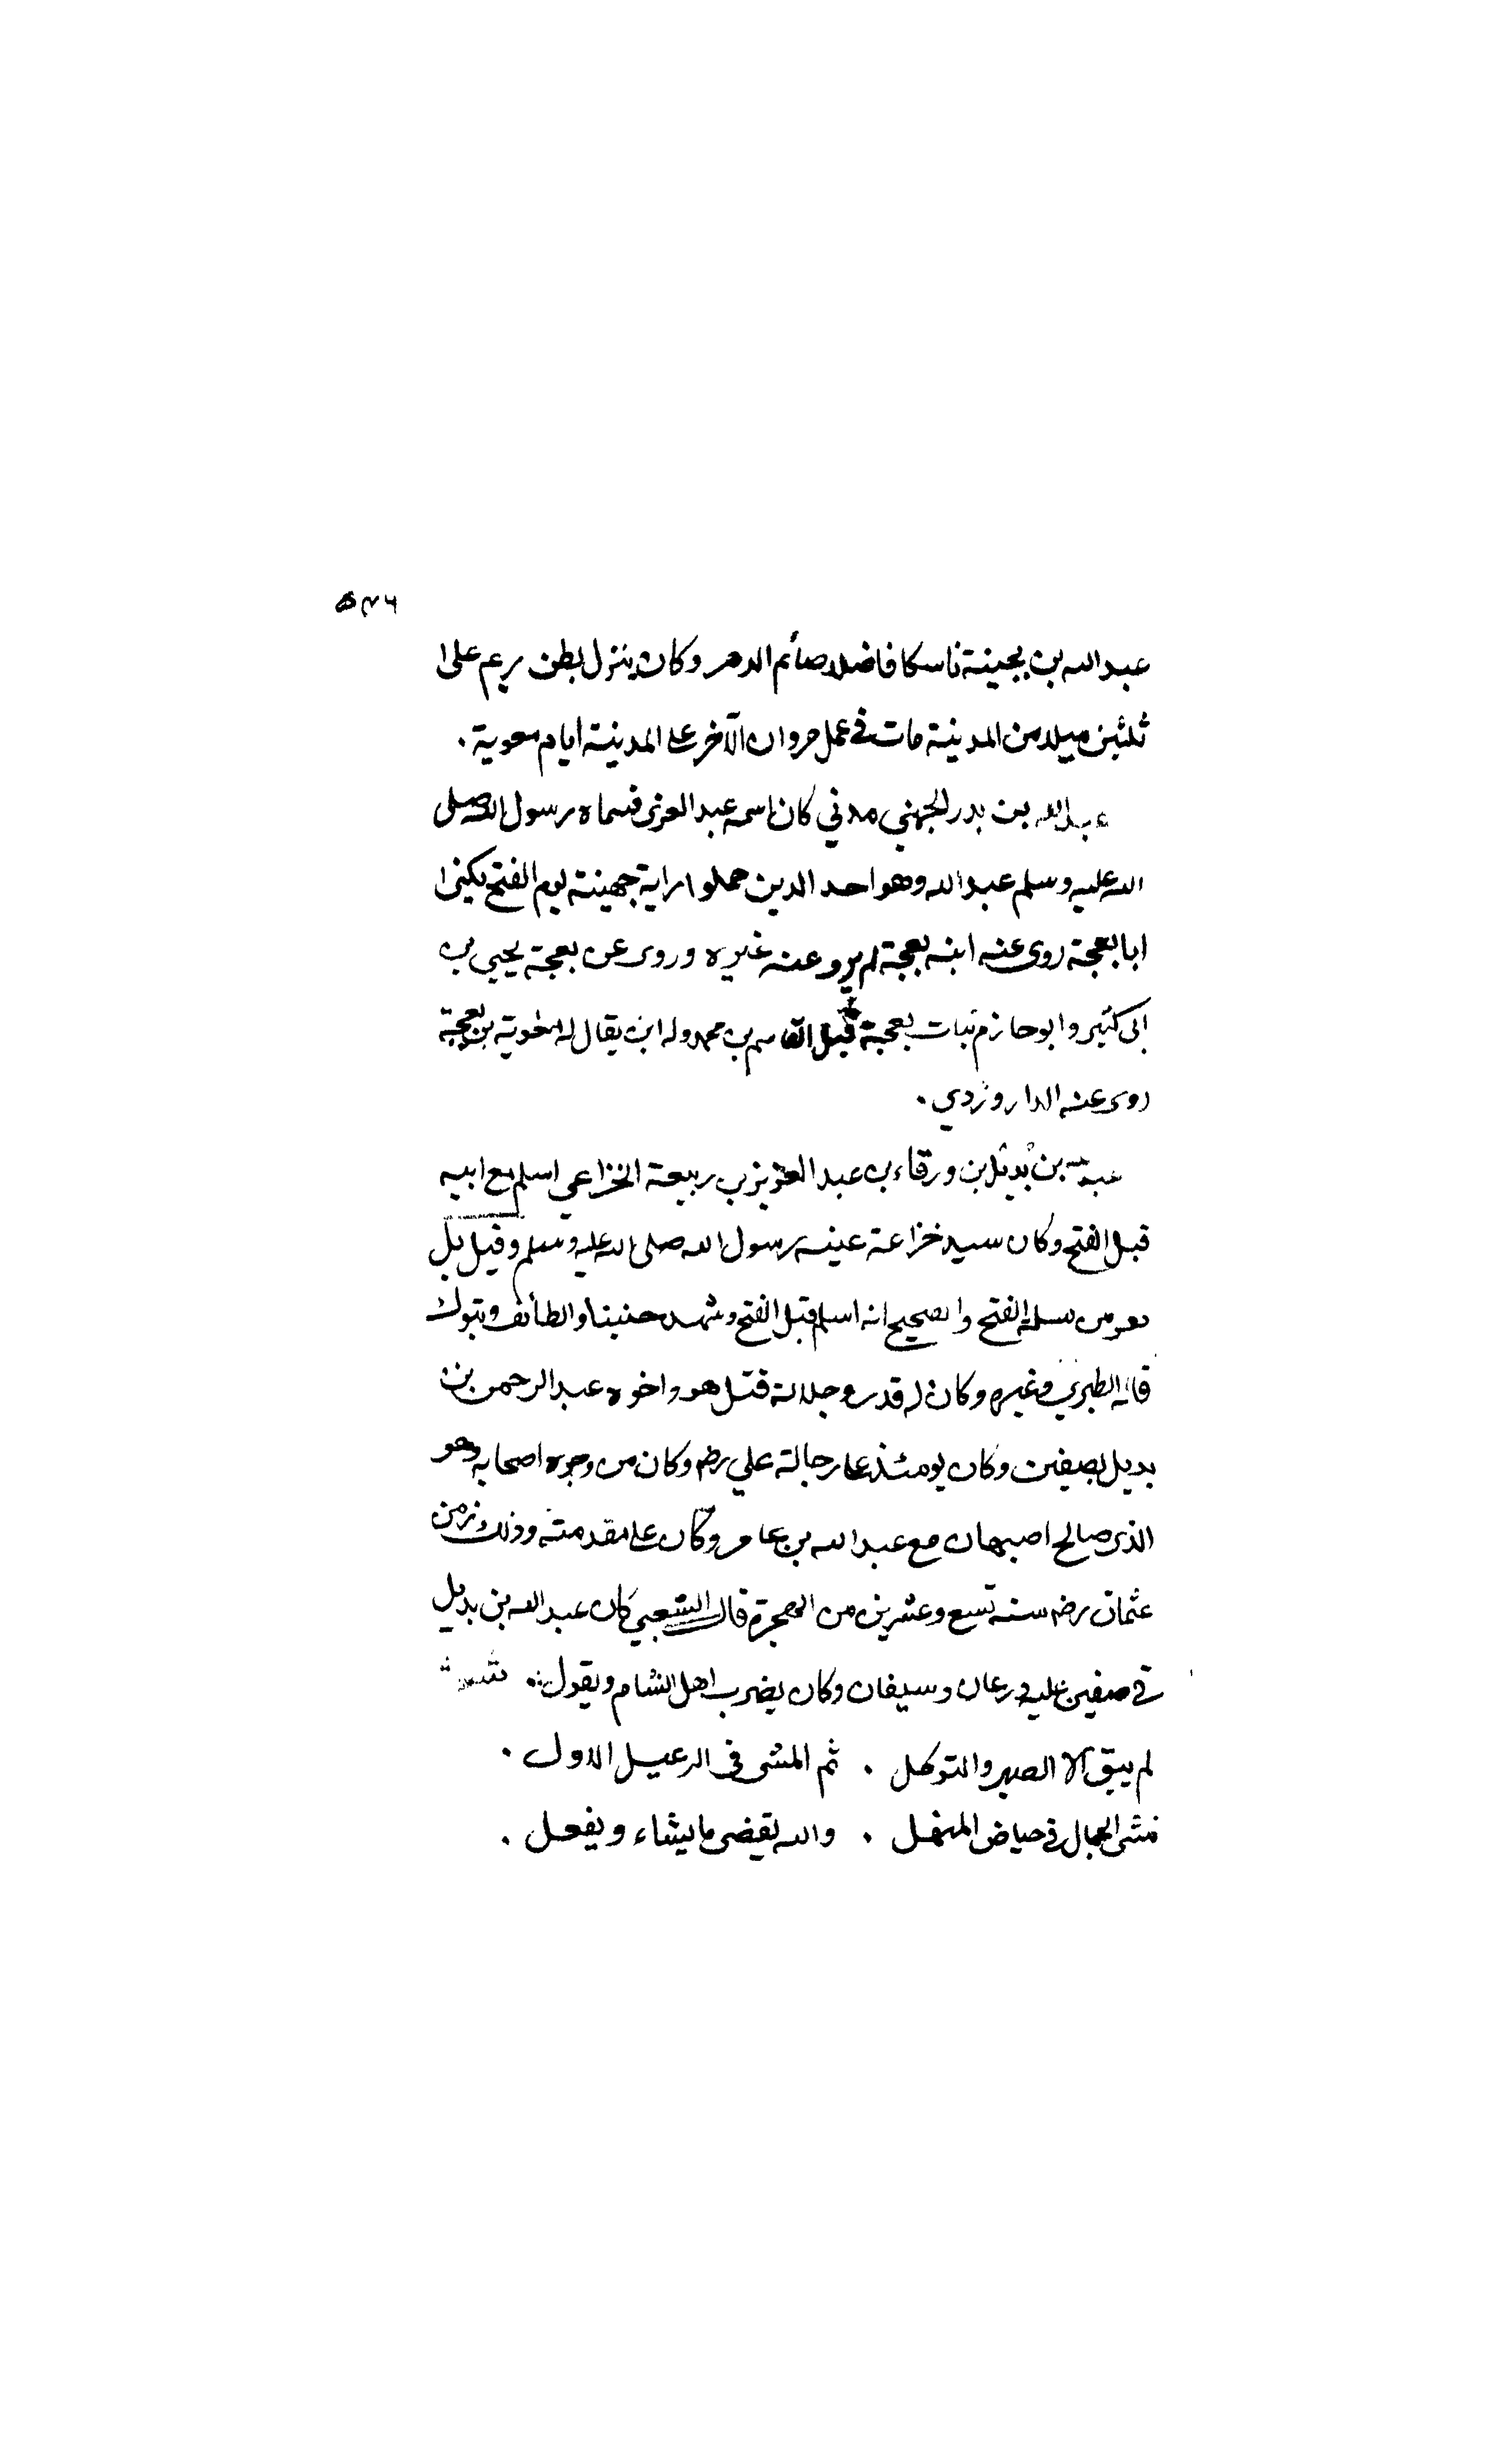 عبد الله بن بحينة ناسكا فاضلا صائم الدهر وكان ينزل بطن ريم على
ثلثين ميلا من المدينة مات في عمل مروان الآخر على المدينة ايام معوية .
عبد الله بن بدر الجهني مدني كان اسمه عبد العزى فسماه رسول الله صلى
الله عليه وسلم عبد الله وهو احد الذين حملوا راية جهينة يوم الفتح يكنى
ابا بعجة روى عنه ابنه بعجة لم يرو عنه غيره وروى عن بعجة يحيى بن
ابي كثير وابو حازم بعجة قبل القاسم بن محمد وله ابن يقال له بن بعجة
روى عنه الدراوردي .
عبد الله بن بديل بن ورقاء بن عبد العزيز بن ربيعة الخزاعي اسلم مع ابيه
قبل الفتح وكان سيد خزاعة رسول الله صلى الله عليه وسلم وقيل بل
هو من مسلمة الفتح والصحيح انه اسلم قبل الفتح وشهد حنينا والطائف وتبوك
قاله الطبري وغيره وكان له قدر وجلالة قتل هو واخوه عبد الرحمن بن
بديل بصفين وكان يومئذ على رجالة علي رضه وكان من وجوه اصحابه وهو
الذى صالح اصبهان مع عبد الله بن عامر وكان على مقدمته وذلك زمن
عثمان رضه سنه تسع وعشرين من الهجرة قال الشعبي كان عبد الله بن بديل
في صفين عليه درعان وسيفان وكان يضرب اهل الشام ويقول
لم يبق الا الصبر والتوكل . ثم المشى فى الرعيل الاول .
مشى الجمال في حياض المنهل . والله يقضى ما يشاء ويفعل .